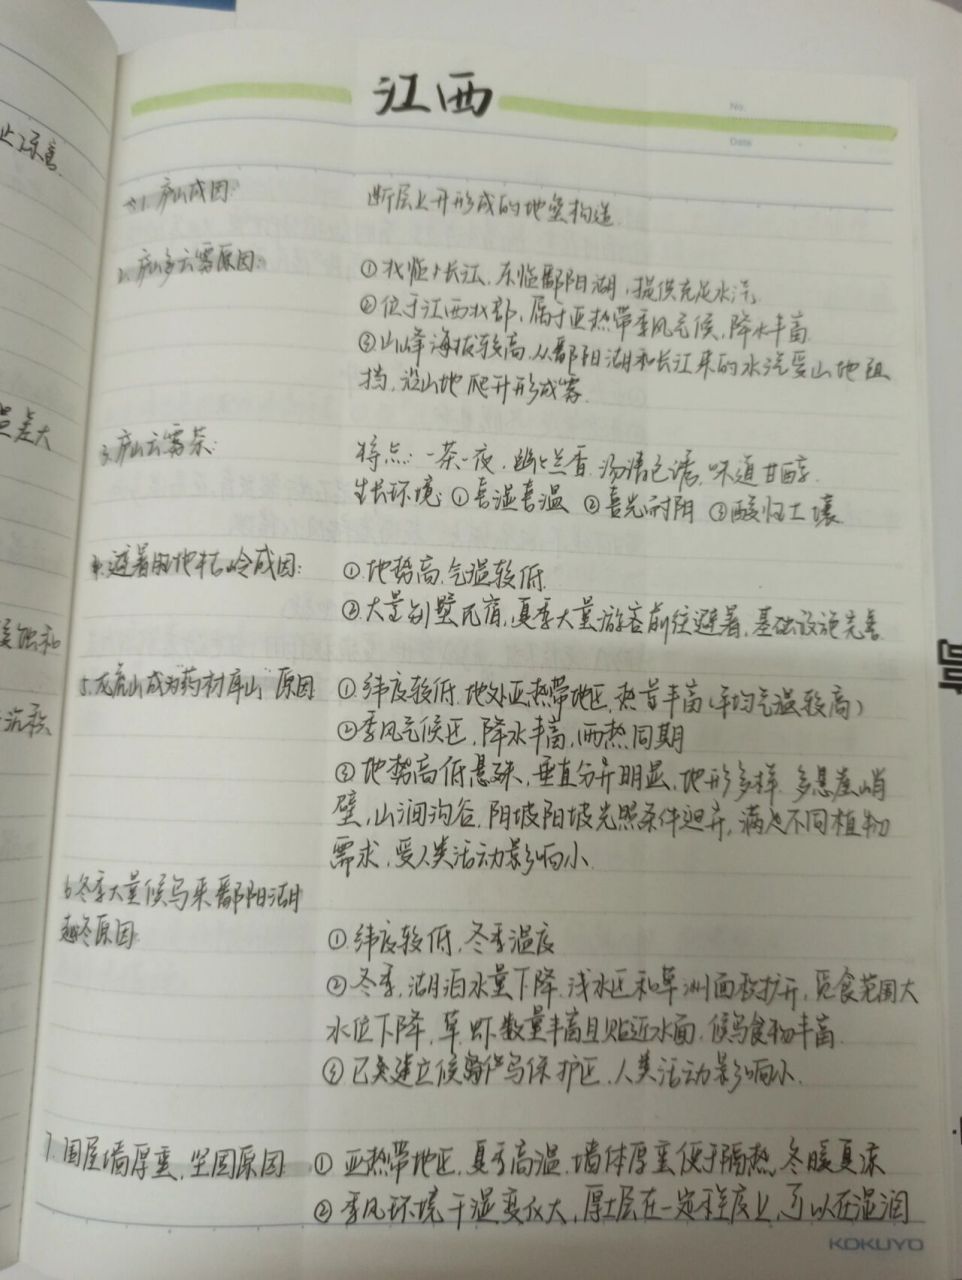 止诼害
差大
蚀和
沉积
江西
No.
Date
1. 庐山成因: 断层上升形成的地垒构造.
2. 庐山多云雾原因: ①北临长江,东临鄱阳湖,提供充足水汽
②位于江西北部,属于亚热带季风气候,降水丰富
③山峰海拔较高,从鄱阳湖和长江来的水汽受山地阻
挡,沿山地爬升形成雾.
3.庐山云雾茶: 特点: 一茶一夜,幽幽兰香,汤清色诱,味道甘醇.
生长环境: ①喜湿喜温 ②喜光耐阴 ③酸性土壤
4.避暑胜地牯岭成因: ①地势高,气温较低.
②大量别墅民宿,夏季大量游客前往避暑,基础设施完善.
5.龙虎山成为"药材库山"原因 ①.纬度较低.地处亚热带地区,热量丰富(年均气温较高)
②季风气候区,降水丰富,雨热同期
③地势高低悬殊,垂直分异明显,地形多样.多悬崖峭
壁,山涧沟谷.阴坡阳坡光照条件迥异,满足不同植物
需求,受人类活动影响小.
6冬季大量候鸟来鄱阳湖
越冬原因: ①.纬度较低,冬季温度
②冬季,湖泊水量下降,浅水区和草洲面积扩开,觅食范围大
水位下降,草、虾数量丰富且贴近水面,候鸟食物丰富.
③已建立候鸟保护区,人类活动影响小.
7.围屋墙厚重,坚固原因 ① 亚热带地区,夏季高温,墙体厚重便于隔热,冬暖夏凉
② 季风环境干湿变化大,厚土层在一定程度上,可以在湿润
KOKUYO